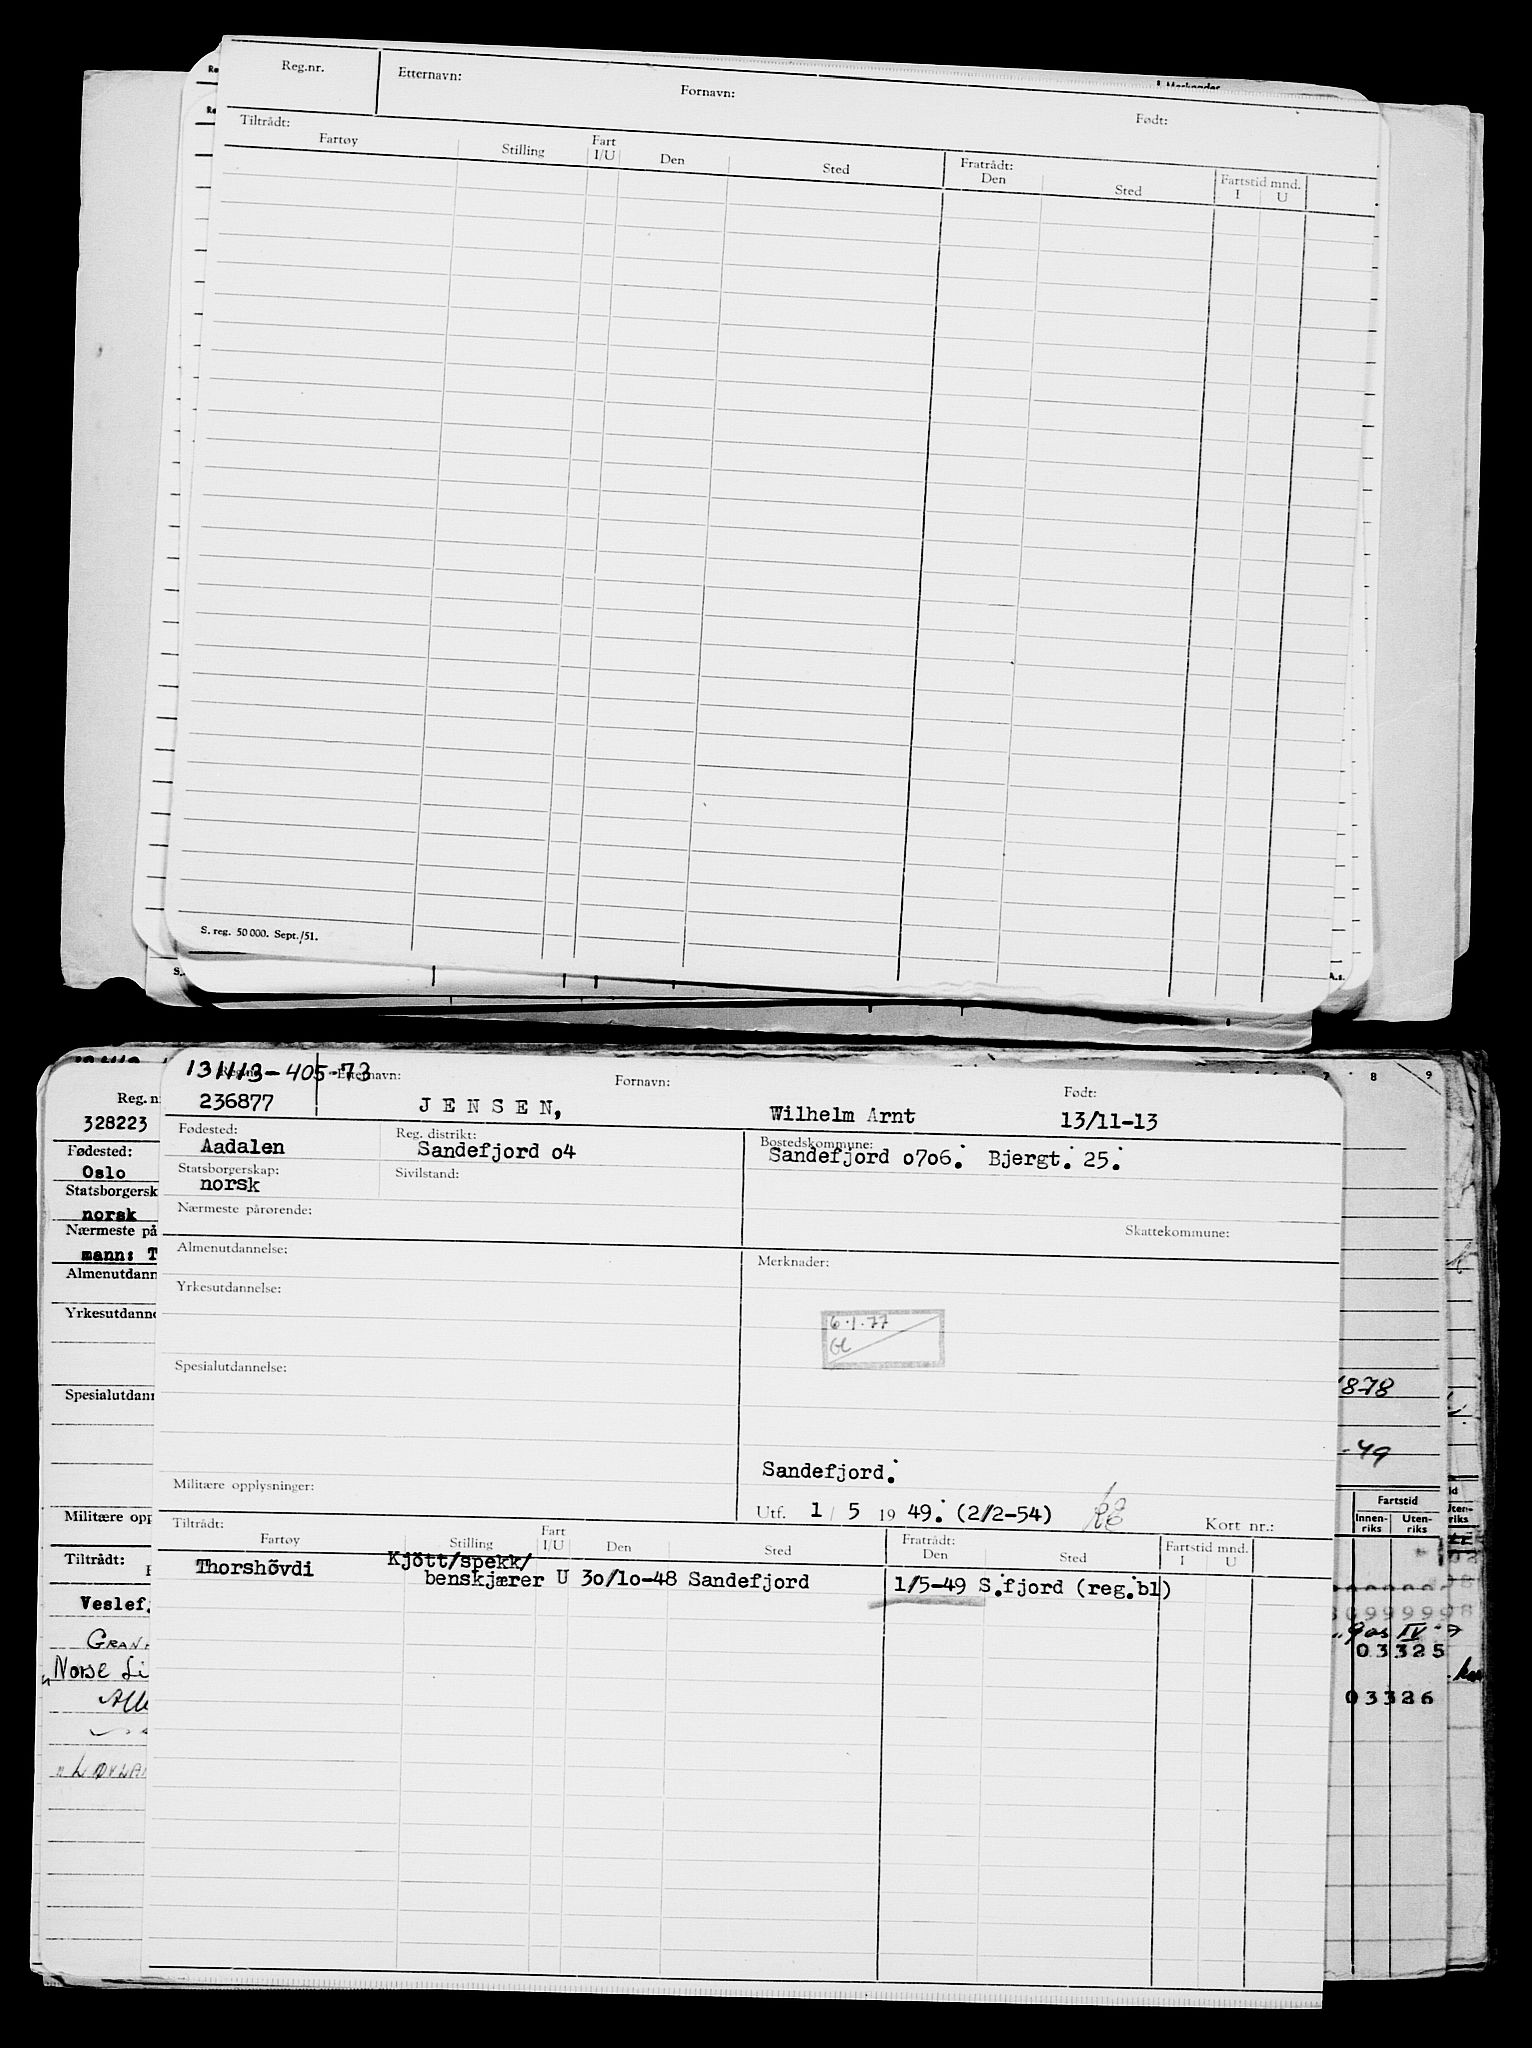 Merknader
Reg.nr.
Etternavn:
Fornavn:
Født:
Tiltrådt:
Fartøy
Stilling
Fart
I/U
Den
Sted
Fratrådt:
Den
Sted
Fartstid mnd.
I U
S. reg. 50 000. Sept./51.
131113-405-73
Etternavn:
Fornavn:
Født:
236877
JENSEN,
Wilhelm Arnt
13/11-13
Fødested:
Aadalen
Reg. distrikt:
Sandefjord o4
Bostedskommune:
Sandefjord o7o6. Bjergt. 25.
Statsborgerskap:
norsk
Sivilstand:
Nærmeste pårørende:
Skattekommune:
Almenutdannelse:
Merknader:
Yrkesutdannelse:
6.1.77
Spesialutdannelse:
Sandefjord.
Militære opplysninger:
Utf. 1 / 5 19 49. (2/2-54)
Kort nr.:
Tiltrådt:
Fartøy
Stilling
Fart
I/U
Den
Sted
Fratrådt:
Den
Sted
Fartstid mnd.
I U
Thorshövdi
Kjött/spekk/
benskjærer U 3o/1o-48 Sandefjord
1/5-49 S.fjord (reg.bl)
Reg. n
328223
Fødested:
Oslo
Statsborgersk
norsk
Nærmeste på
mann: T
Almenutdann
Yrkesutdann
Spesialutdann
Militære opp
Tiltrådt:
Veslef
GRAN
Norse Li
8 9
1878
-49
Fartstid
Innen-
riks
Uten-
riks
03325
03326